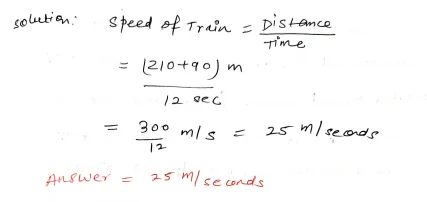 solution: Speed of Train = Distance / Time
= (210+90) m / 12 sec
= 300/12 m/s = 25 m/seconds
Answer = 25 m/seconds